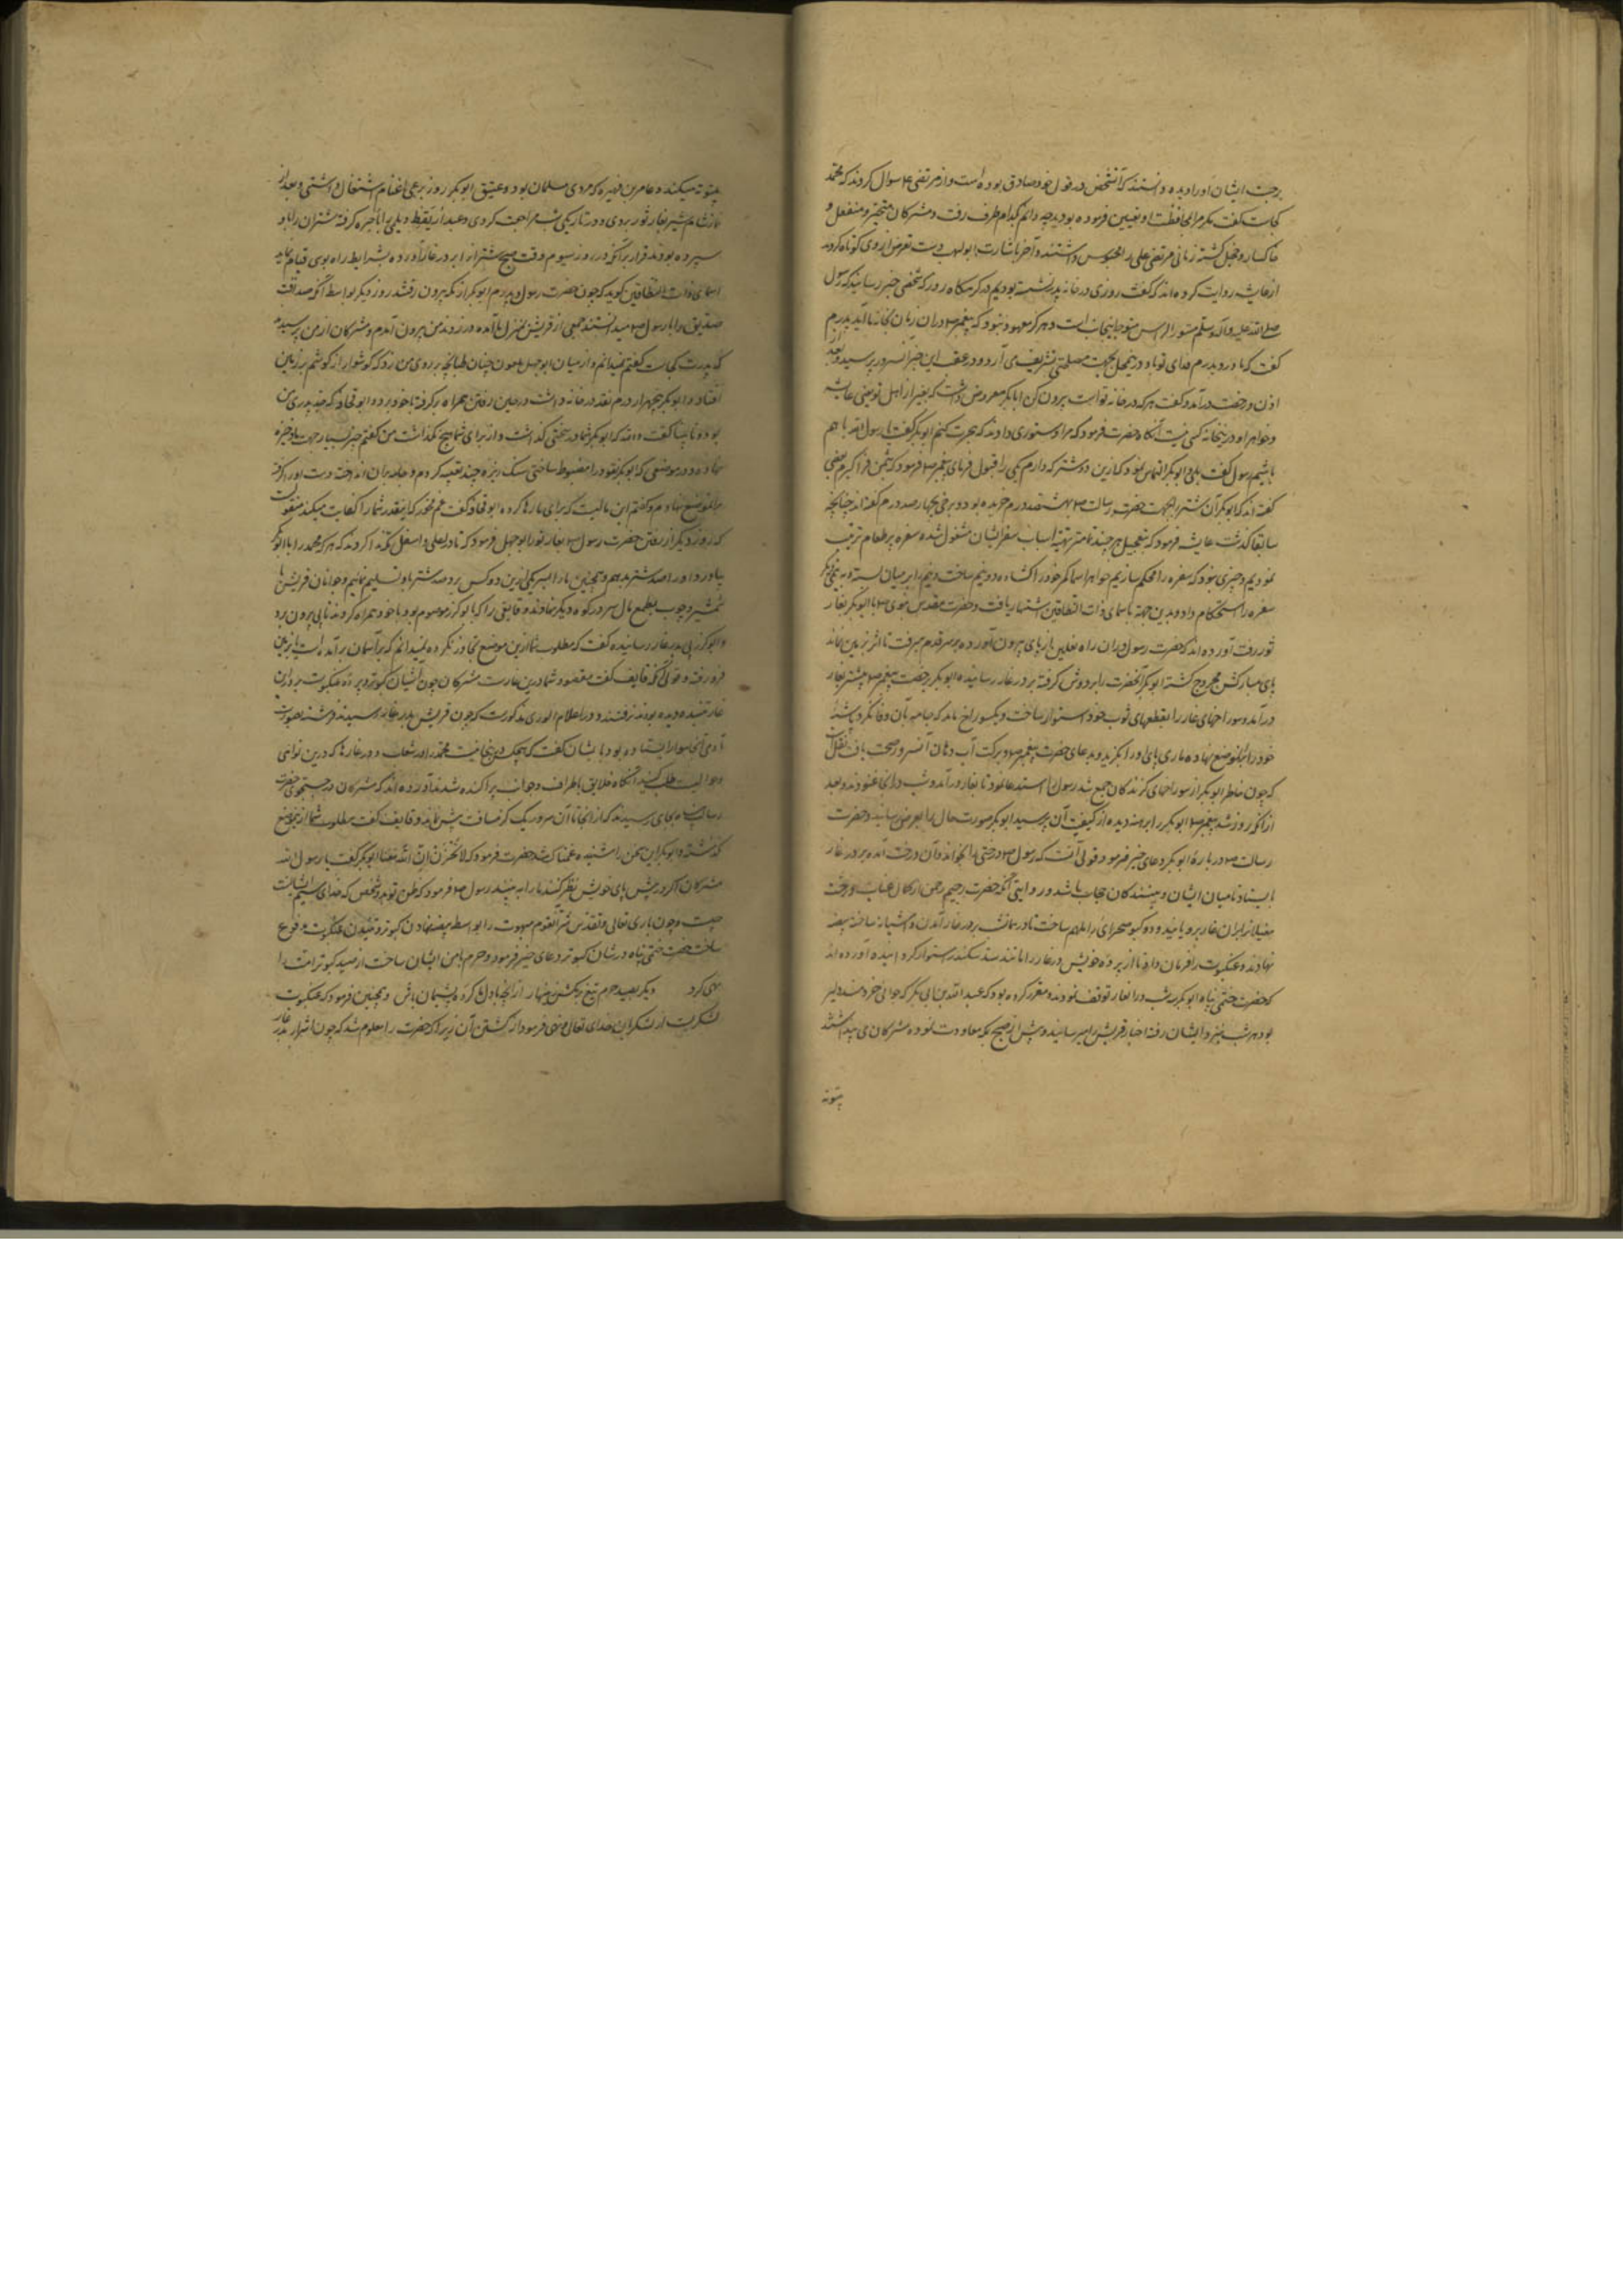 برجست ایشان او را دیده دانستند که آنشخص در قول خود صادق بوده است و از مرتضی ع سوال کردند که محمد
کجاست گفت مگر مرا بمحافظت او تعیین فرموده بودید چه دانم کدام طرف رفت و مشرکان متحیر و منفعل و
خاکسار و خجل گشته زمانی مرتضی علی را محبوس داشتند و آخر باشارت ابولهب دست تعرض از وی کوتاه کردند
از عایشه روایت کرده اند که گفت روزی در خانه پدر نشسته بودیم در گرمگاه روز که شخصی خبر رسانید که رسول
صلی الله علیه و آله و سلم مستور الراس متوجه اینجانب است و هرگز معهود نبود که پیغمبر ص در آن زمان بخانه ما آید پدرم
گفت که مادر و پدرم فدای تو باد درین محل بجهت مصلحتی تشریف می آرد و در عقب این خبر آنسرور پرسید و بعد از
اذن و رخصت درآمد و گفت هر که در خانه تو است بیرون کن ابابکر معروض داشت که بغیر از اهل تو یعنی عایشه
و خواهر او درینخانه کسی نیست آنگاه حضرت فرمود که مرا دستوری دادند که هجرت کنم ابوبکر گفت یا رسول الله با هم
باشیم رسول گفت بلی و ابوبکر التماس نمود که ازین دو شتر که دارم یکی را قبول فرمای پیغمبر ص فرمود که بثمن فرا گیرم بعضی
گفته اند که ابوبکر آن شتر را بجهت حضرت رسالت ص بهشتصد درم خریده بود و برخی بچهار صد درم گفته اند چنانچه
سابقا گذشت عایشه فرمود که بتعجیل هر چند تمامتر تهیه اسباب سفر ایشان مشغول شده سفره پر طعام ترتیب
نمودیم و چیزی نبود که سفره را محکم سازیم خواهرم اسما کمر خود را گشاده دو نیم ساخت و نیم را بر میان بسته و به نیم دیگر
سفره را استحکام داد و بدین جهة باسمای ذات النطاقین اشتهار یافت و حضرت مقدس نبوی ص با ابوبکر بغار
ثور رفت آورده اند که حضرت رسول در آن راه نعلین از پای بیرون آورده بر سر قدم میرفت تا اثر بر زمین نماند
پای مبارکش مجروح گشته ابوبکر آنحضرت را بر دوش گرفته بر در غار رسانیده ابوبکر برخصت پیغمبر ص پیشتر بغار
درآمد و سوراخهای غار را بقطعهای ثوب خود استوار ساخت و یکسوراخ ماند که جامه بآن وفا نکرد پاشنهٔ
خود را بر آنموضع نهاده ماری پای او را بگزید و بدعای حضرت پیغمبر ص و برکت آب دهان آنسرور صحت یافت نقلست
که چون خاطر ابوبکر از سوراخهای گزندگان جمع شد رسول را استدعا نمود تا بغار درآمد و شب در آنجا غنودند و بعد
از آنکه روز شد پیغمبر ص ابوبکر را برهنه دیده از کیفیت آن پرسید ابوبکر صورت حال را بعرض رسانید و حضرت
رسالت ص دربارهٔ ابوبکر دعای خیر فرمود و قولی آنست که رسول ص درختی را بخواند و آن درخت آمده بر در غار
بایستاد تا میان ایشان و بینندگان حجاب باشد و روایتی آنکه حضرت رحیم رحمن از کمال عنایت درخت
مغیلانی از آن غار برویانید و دو کبوتر صحرای را ملهم ساخت تا در همانشب بر در غار آمدند و آشیانه ساخته بیضه
نهادند و عنکبوت را فرمان داد تا از پردهٔ خویش در غار را مانند سد سکندر استوار گردانیده آورده اند
که حضرت ختمی پناه ابوبکر سه شب در آنغار توقف نمودند و مقرر کرده بود که عبدالله بن ابی بکر که جوانی خردمند و دلیر
بود هر شب نزد ایشان رفته اخبار قریش را میرسانید و پیش از صبح بمکه معاودت نموده مشرکان می پنداشتند
بیتوته
بیتوته میکند و عامر بن فهیره که مردی مسلمان بود و عتیق ابوبکر روز برعی اغنام اشتغال داشتی و بعد از
نماز شام شیر بغار ثور بردی و در تاریکی شب مراجعت کردی و عبدالله بن اریقط دیلی را باجیره گرفته شتران را باو
سپرده بودند قرار برآنکه در روز سیوم وقت صبح شتران را بر در غار آورده بشرایط راه بری قیام نماید
اسمای ذات النطاقین گوید که چون حضرت رسول و پدرم ابوبکر از مکه بیرون رفتند روز دیگر بواسطه آنکه صداقت
صدیق را با رسول ص میدانستند جمعی از قریش بمنزل ما آمده در زدند من بیرون آمدم و مشرکان از من پرسیدند
که پدرت کجاست گفتم نمیدانم و از میان ابوجهل ملعون چنان طپانچه بر روی من زد که گوشوار از گوشم بر زمین
افتاد و ابوبکر پنجهزار درم نقد در خانه داشت در حین رفتن همراه برگرفته با خود برد و ابو قحافه که جد پدری من
بود و نابینا گفت والله که ابوبکر شما را در سختی گذاشت و از برای شما هیچ نگذاشت من گفتم خیر بسیار جهت ما ذخیره
نهاده و در موضعی که ابوبکر نقود را مضبوط ساختی سنگ ریزه چند تعبیه کردم و جامه بران انداخته دست او را گرفته
بر آنموضع نهادم و گفتم این مالیت که برای ما رها کرده ابو قحافه گفت غم مخور که اینقدر شما را کفایت میکند منقولست
که روز دیگر از رفتن حضرت رسول ص بغار ثور ابوجهل فرمود که تا در اعلی و اسفل مکه ندا کردند که هر که محمد را یا ابوبکر
بیاورد او را صد شتر بدهم و همچنین ما را بسر یکی ازین دو کس برد صد شتر باو تسلیم نمائیم و جوانان قریش با
شمشیر و چوب بطمع مال سر در کوه و دیگر نهادند و قایفی را که بابو کرز موسوم بود با خود همراه کردند تا پی بیرون برد
و ابو کرز پی بدر غار رسانیده گفت که مطلوب شما ازین موضع تجاوز نکرده نمیدانم که بر آسمان برآمده است یا بزمین
فرو رفته و قولی آنکه قایف گفت مقصود شما درین غارست مشرکان چون آشیان کبوتر و پردهٔ عنکبوت بر در آن
غار تنیده دیده بودند نرفتند و در اعلام الوری مذکورست که چون قریش بدر غار رسیدند فرشته بصورت
آدمی آنجا سوار ایستاده بود با ایشان گفت که هیچکس درینجا نیست محمد را در شعاب و در غارها که درین نواحی
و حوالیست طلب کنید آنگاه خلایق باطراف و جوانب پراکنده شدند آورده اند که مشرکان در جستجوی حضرت
رسالت پناه بجای رسیدند که از آنجا تا آن سرور یک گز مسافت بیش نماند و قایف گفت مطلوب شما ازینموضع
نگذشته و ابوبکر این سخن را شنیده غمناک شد حضرت فرمود که لا تحزن ان الله معنا ابوبکر گفت یا رسول الله
مشرکان اگر در پیش پای خویش نظر کنند ما را به بینند رسول ص فرمود که ظن تو بدو شخص که خدای سیم ایشانست
چیست و چون باری تعالی و تقدس شر آنقوم مبهوت را بواسطه بیضه نهادن کبوتر و تنیدن عنکبوت مدفوع
ساخت حضرت ختمی پناه در شان کبوتر دعای خیر فرمود و حرم را مامن ایشان ساخت از صید کبوتر امت را
نهی کرد دیگر بصید حرم تیغ برمکش زنهار از آنچه با دل ما کردهٔ پشیمان باش و همچنین فرمود که عنکبوت
لشکریست از لشکرهای خدای تعالی و نهی فرمود از کشتن آن زیرا که حضرت را معلوم شد که چون اشرار بدر غار